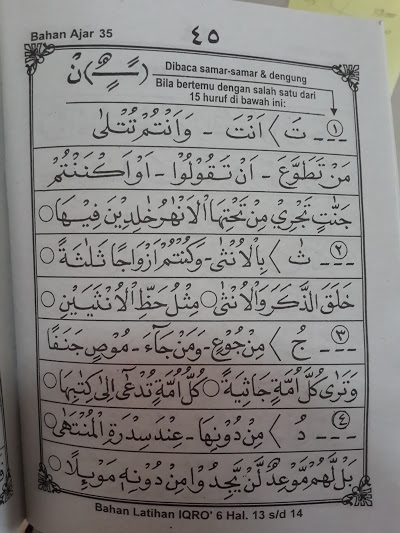 Bahan Ajar 35
٤٥
نْ (ـًــٍــٌ) Dibaca samar-samar & dengung
Bila bertemu dengan salah satu dari
15 huruf di bawah ini:
١ --- تَ〉اَنْتَ - وَاَنْتُمْ تُتْلٰى
مَنْ تَطَوَّعَ - اَنْ تَقُوْلُوْا - اَوْ اَكْنَنْتُمْ
جَنّٰتٍ تَجْرِيْ مِنْ تَحْتِهَا الْاَنْهٰرُ خٰلِدِيْنَ فِيْهَا ○
٢ --- ثُ〉بِالْاُنْثٰى - وَكُنْتُمْ اَزْوَاجًا ثَلٰثَةً ○
خَلَقَ الذَّكَرَ وَالْاُنْثٰى ○ مِثْلُ حَظِّ الْاُنْثَيَيْنِ ○
٣ --- جُ〉مِنْ جُوْعٍ - وَمَنْ جَآءَ - مُوْصٍ جَنَفًا
وَتَرٰى كُلَّ اُمَّةٍ جَاثِيَةً ○ كُلُّ اُمَّةٍ تُدْعٰٓى اِلٰى كِتٰبِهَا ○
٤ --- دُ〉مِنْ دُوْنِهَا - عِنْدَ سِدْرَةِ الْمُنْتَهٰى
بَلْ لَّهُمْ مَّوْعِدٌ لَّنْ يَّجِدُوْا مِنْ دُوْنِهٖ مَوْئِلًا ○
Bahan Latihan IQRO' 6 Hal. 13 s/d 14